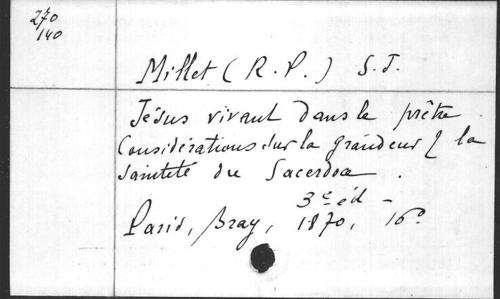 270
140
Millet (R. P.) S. J.
Jésus vivant dans le prêtre
Considérations sur la grandeur & la
Sainteté du Sacerdoce.
3e éd -
Paris, Bray, 1870, 16o